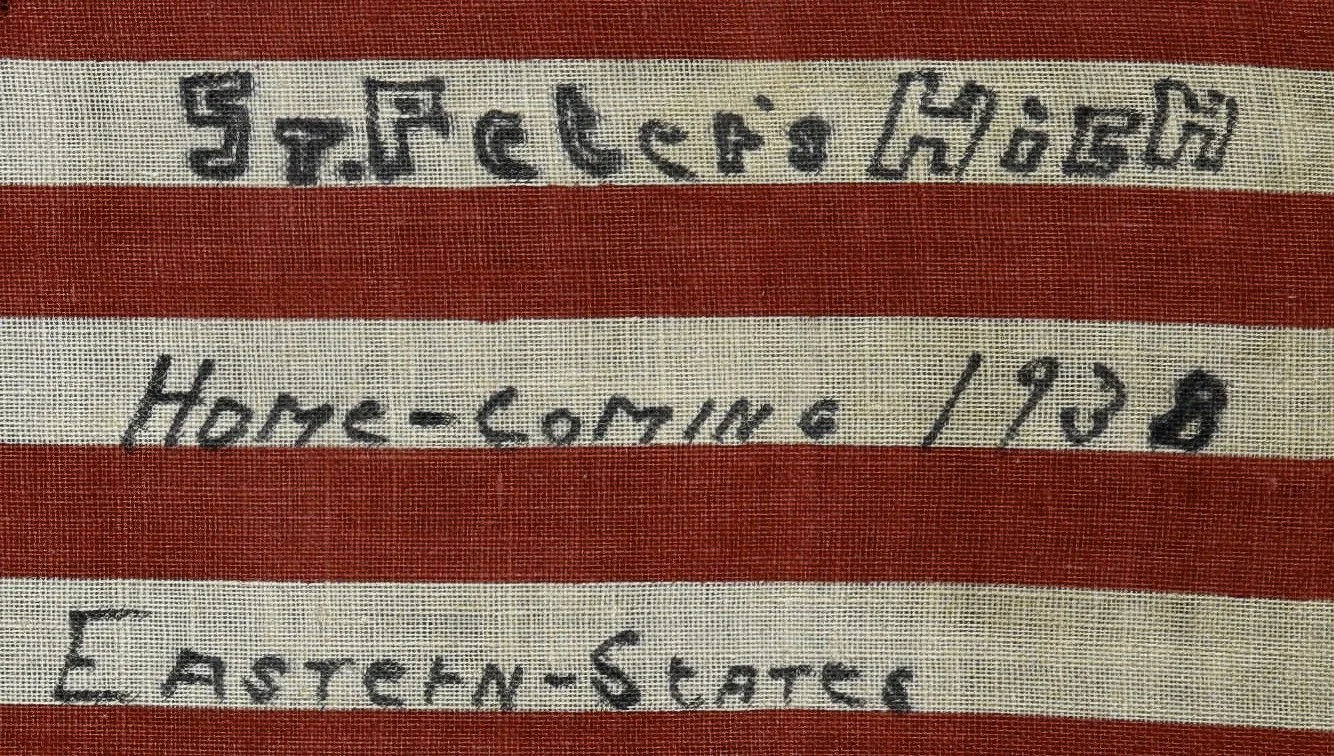 St. Peter's High
Home-Coming 1938
Eastern-States